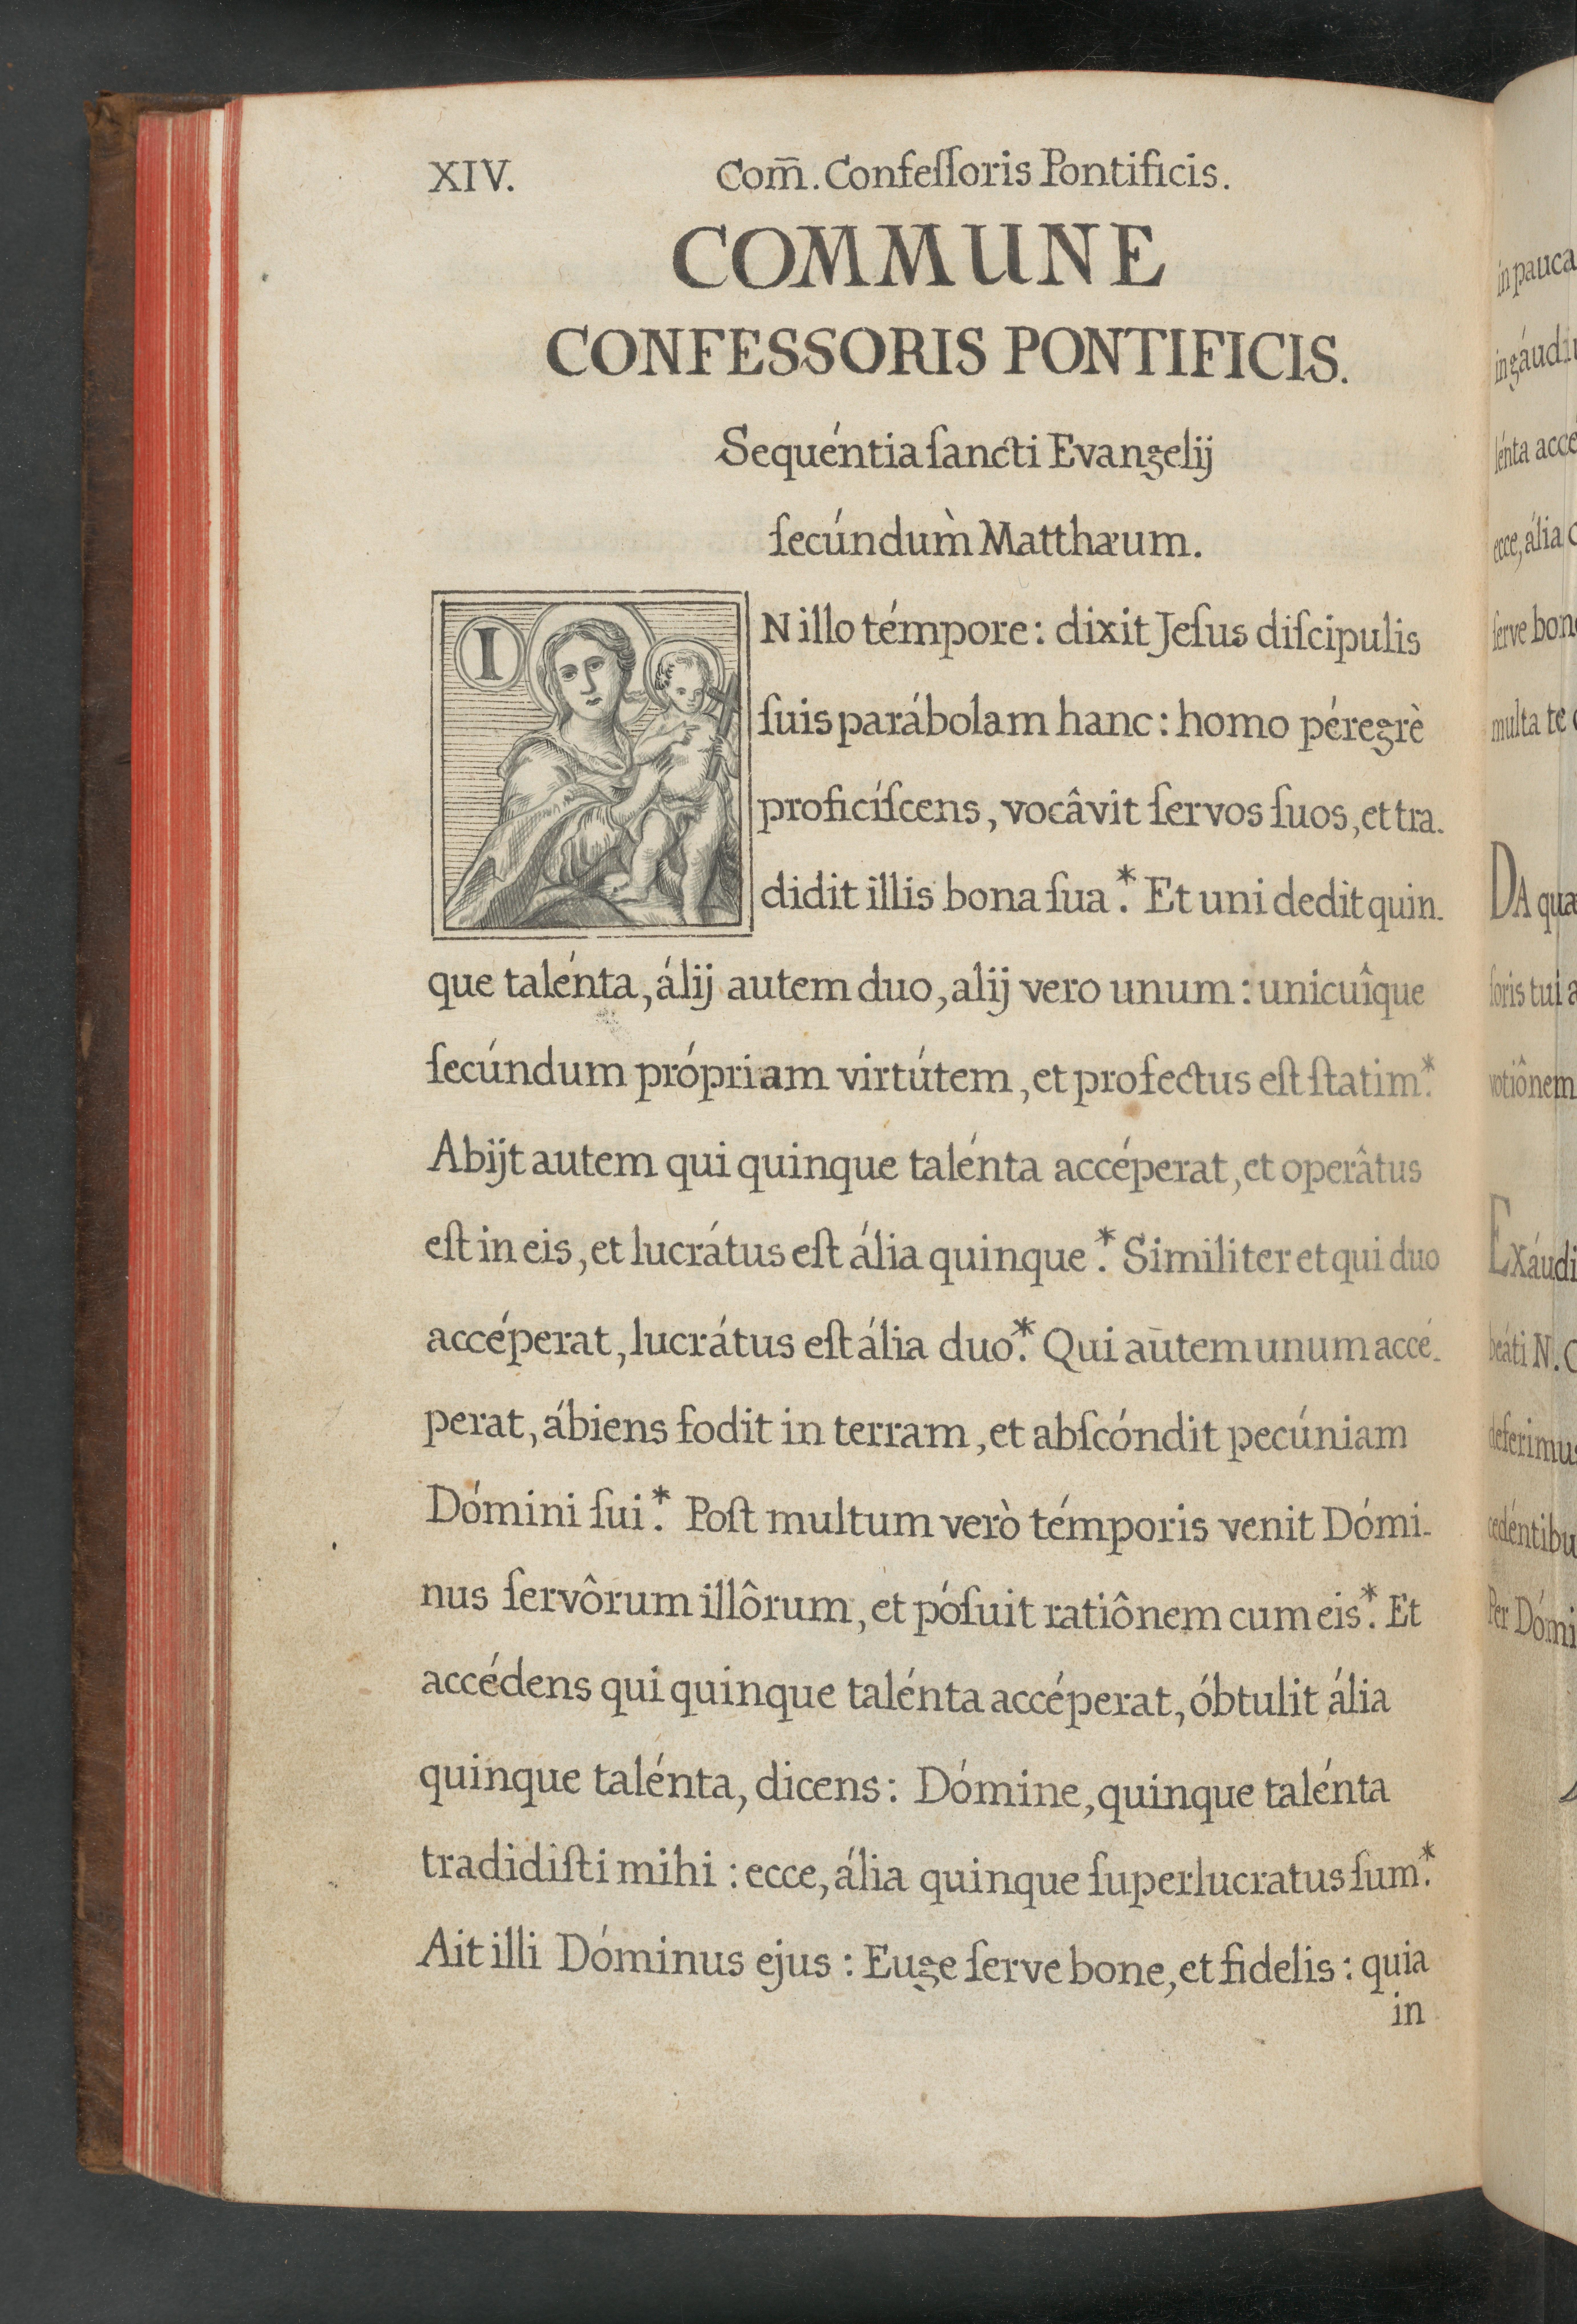 XIV. Com̄. Confeſſoris Pontificis.
COMMUNE
CONFESSORIS PONTIFICIS.
Sequéntia ſancti Evangelij
ſecúndum̀ Matthæum.
IN illo témpore: dixit Jeſus diſcipulis
ſuis parábolam hanc: homo péregrè
proficíſcens, vocâvit ſervos ſuos, et tra-
didit illis bona ſua.* Et uni dedit quin-
que talénta, álij autem duo, alij vero unum: unicuîque
ſecúndum própriam virtútem, et profectus eſt ſtatim.*
Abijt autem qui quinque talénta accéperat, et operâtus
eſt in eis, et lucrátus eſt ália quinque.* Similiter et qui duo
accéperat, lucrátus eſt ália duo.* Qui aūtem unum accé-
perat, ábiens fodit in terram, et abſcóndit pecúniam
Dómini ſui.* Poſt multum verò témporis venit Dómi-
nus ſervôrum illôrum, et póſuit ratiônem cum eis.* Et
accédens qui quinque talénta accéperat, óbtulit ália
quinque talénta, dicens: Dómine, quinque talénta
tradidiſti mihi: ecce, ália quinque ſuperlucratus ſum.*
Ait illi Dóminus ejus: Euge ſerve bone, et fidelis: quia
in
in pauca
in gáudi
lénta acce
ecce, ália
ſerve bon
multa te
DA qua
ſoris tui a
votiônem
Exáudi
beáti N.
deferimus
cedéntibu
Per Dómi